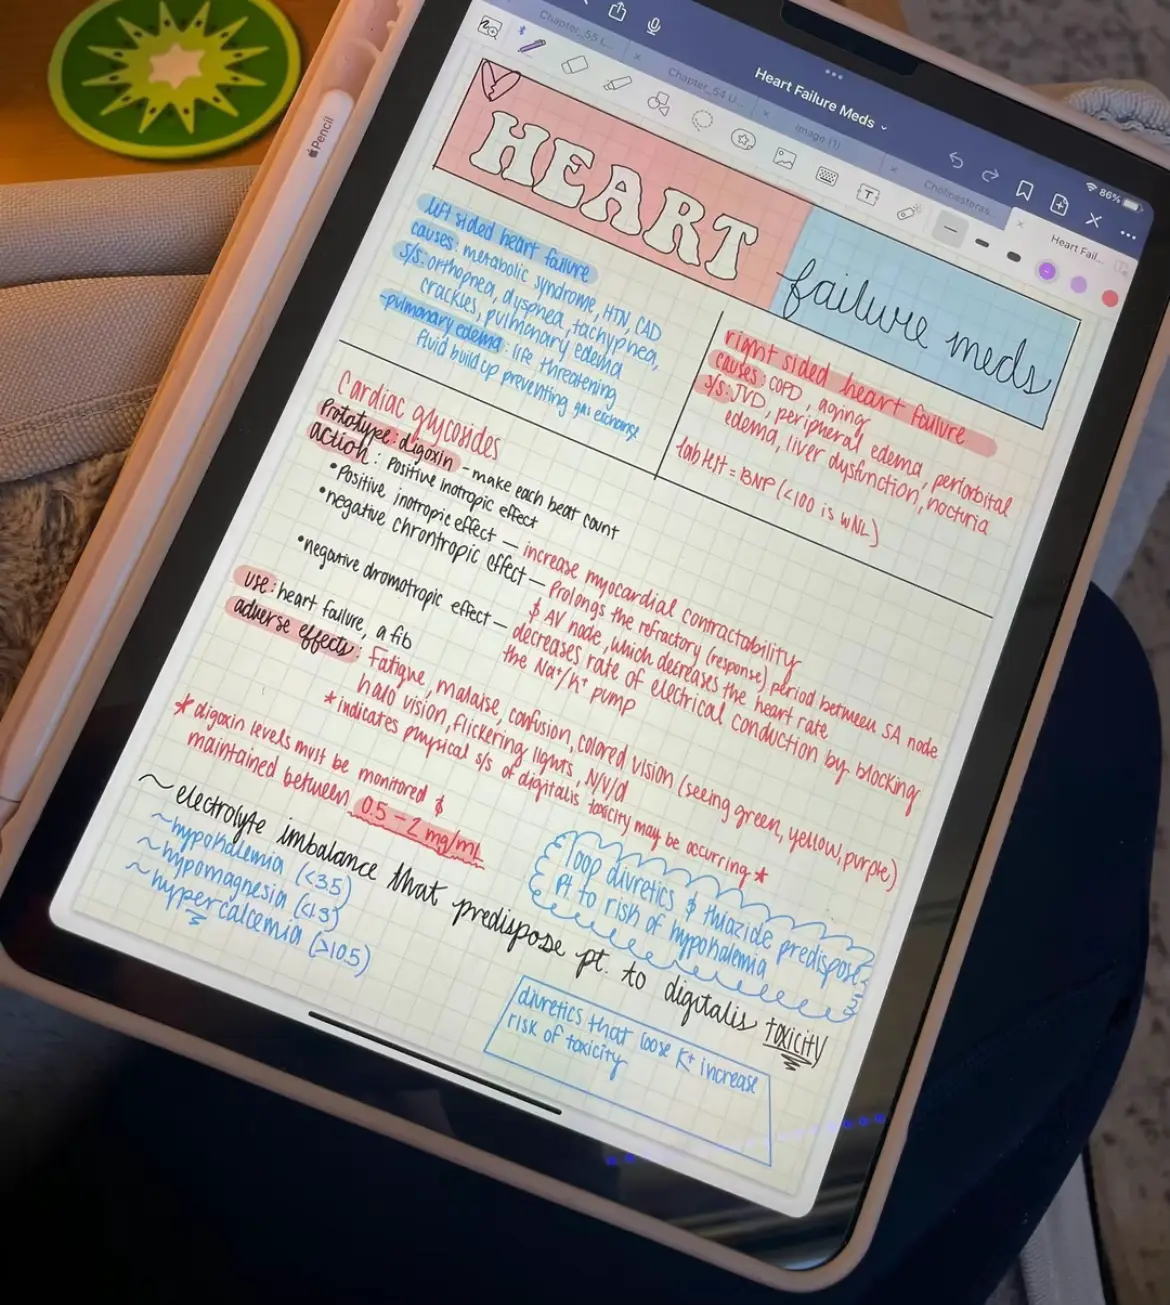 Chapter_55 L...
Chapter_54 U...
Image (1)
Cholinesteras...
Heart Fail...
Heart Failure Meds
86%
Pencil
T
HEART
failure meds
left sided heart failure
causes: metabolic syndrome, HTN, CAD
S/S: orthopnea, dyspnea, tachypnea,
crackles, pulmonary edema
-pulmonary edema: life threatening
fluid build up preventing gas exchange
right sided heart failure
causes: COPD, aging
S/S: JVD, peripheral edema, periorbital
edema, liver dysfunction, nocturia
lab H/t = BNP (<100 is WNL)
Cardiac glycosides
Prototype: digoxin - make each beat count
action: Positive inotropic effect
•Positive inotropic effect — increase myocardial contractability
•negative chrontropic effect — Prolongs the refractory (response) period between SA node
$ AV node, which decreases the heart rate
•negative dromotropic effect — decreases rate of electrical conduction by blocking
the Na⁺/K⁺ pump
use: heart failure, a fib
adverse effects: Fatigue, malaise, confusion, colored vision (seeing green, yellow, purple)
halo vision, flickering lights, N/V/d
*indicates physical s/s of digitalis toxicity may be occurring*
*digoxin levels must be monitored $
maintained between 0.5-2 mg/mL
~electrolyte imbalance that predispose pt. to digitalis toxicity
~hypokalemia (<3.5)
~hypomagnesia (<1.3)
~hypercalcemia (>10.5)
loop diuretics $ thiazide predispose
pt. to risk of hypokalemia
diuretics that loose K+ increase
risk of toxicity